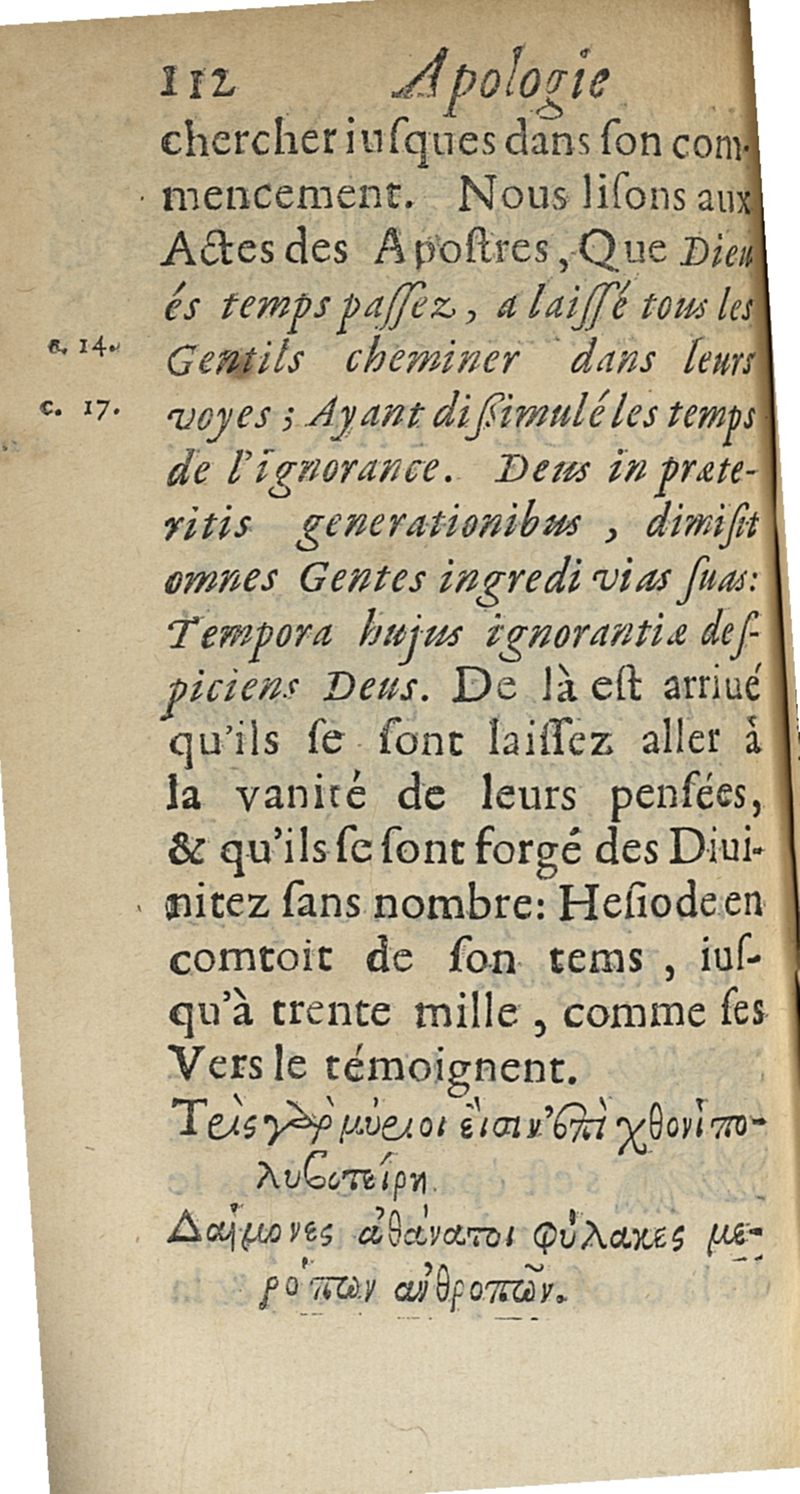 112 Apologie
chercher iuſques dans ſon com-
mencement. Nous liſons aux
Actes des Apoſtres, Que Dieu
és temps paſſez, a laiſſé tous les
c. 14. Gentils cheminer dans leurs
c. 17. voyes ; Ayant diſſimulé les temps
de l'ignorance. Deus in præte-
ritis generationibus , dimiſit
omnes Gentes ingredi vias ſuas:
Tempora hujus ignorantiæ deſ-
piciens Deus. De là eſt arriué
qu'ils ſe ſont laiſſez aller à
la vanité de leurs penſées,
& qu'ils ſe ſont forgé des Diui-
nitez ſans nombre: Heſiode en
comtoit de ſon tems , iuſ-
qu'à trente mille , comme ſes
Vers le témoignent.
Τρὶς γὰρ μύριοι ἐισιν' ἐπὶ χθονὶ πο-
λυβοτείρη
Δαίμονες ἀθάνατοι φύλακες με-
ρόπων ἀνθροπῶν.